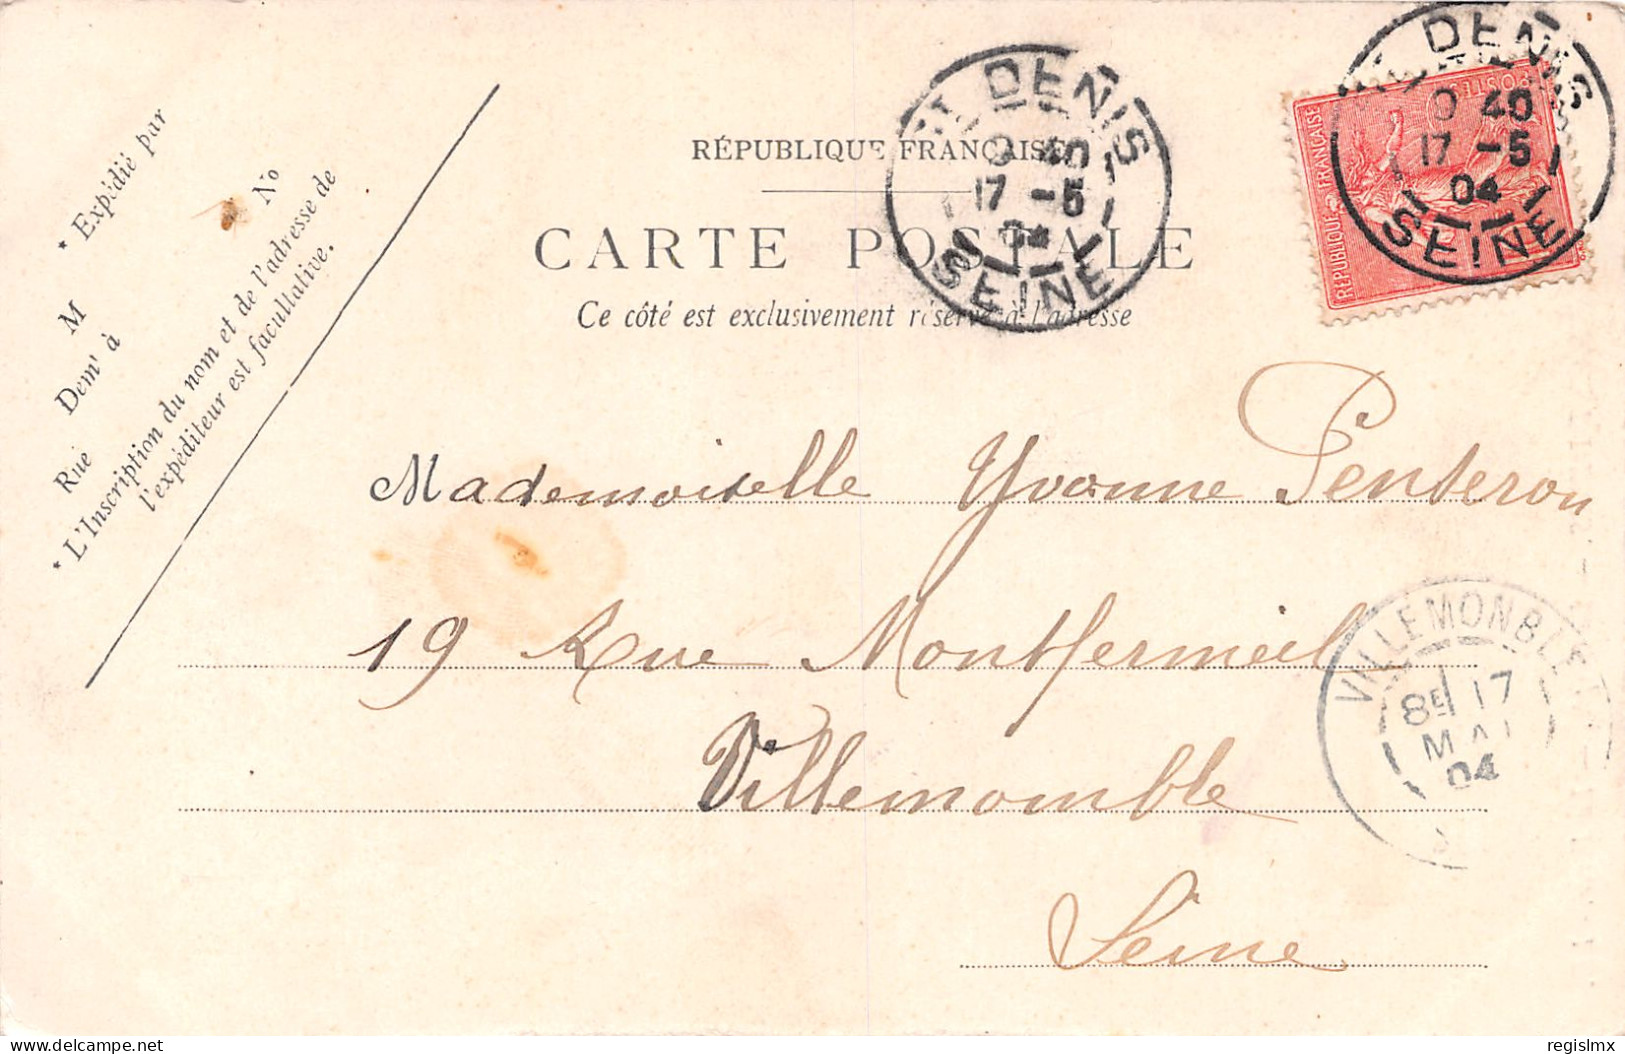 * Expédié par
M
Demt à
Rue
No
* L'Inscription du nom et de l'adresse de
l'expéditeur est facultative.
RÉPUBLIQUE FRANÇAISE
CARTE POSTALE
Ce côté est exclusivement réservé à l'adresse
St DENIS
40
17 -5
04
SEINE
DENIS
40
17 -5
04
SEINE
POSTES
REPUBLIQUE FRANÇAISE
Mademoiselle Yvonne Penteron
19 Rue Montfermeil
Villemomble
Seine
VILLEMONBLE
8E 17
MAI
04
delcampe.net
regislmx